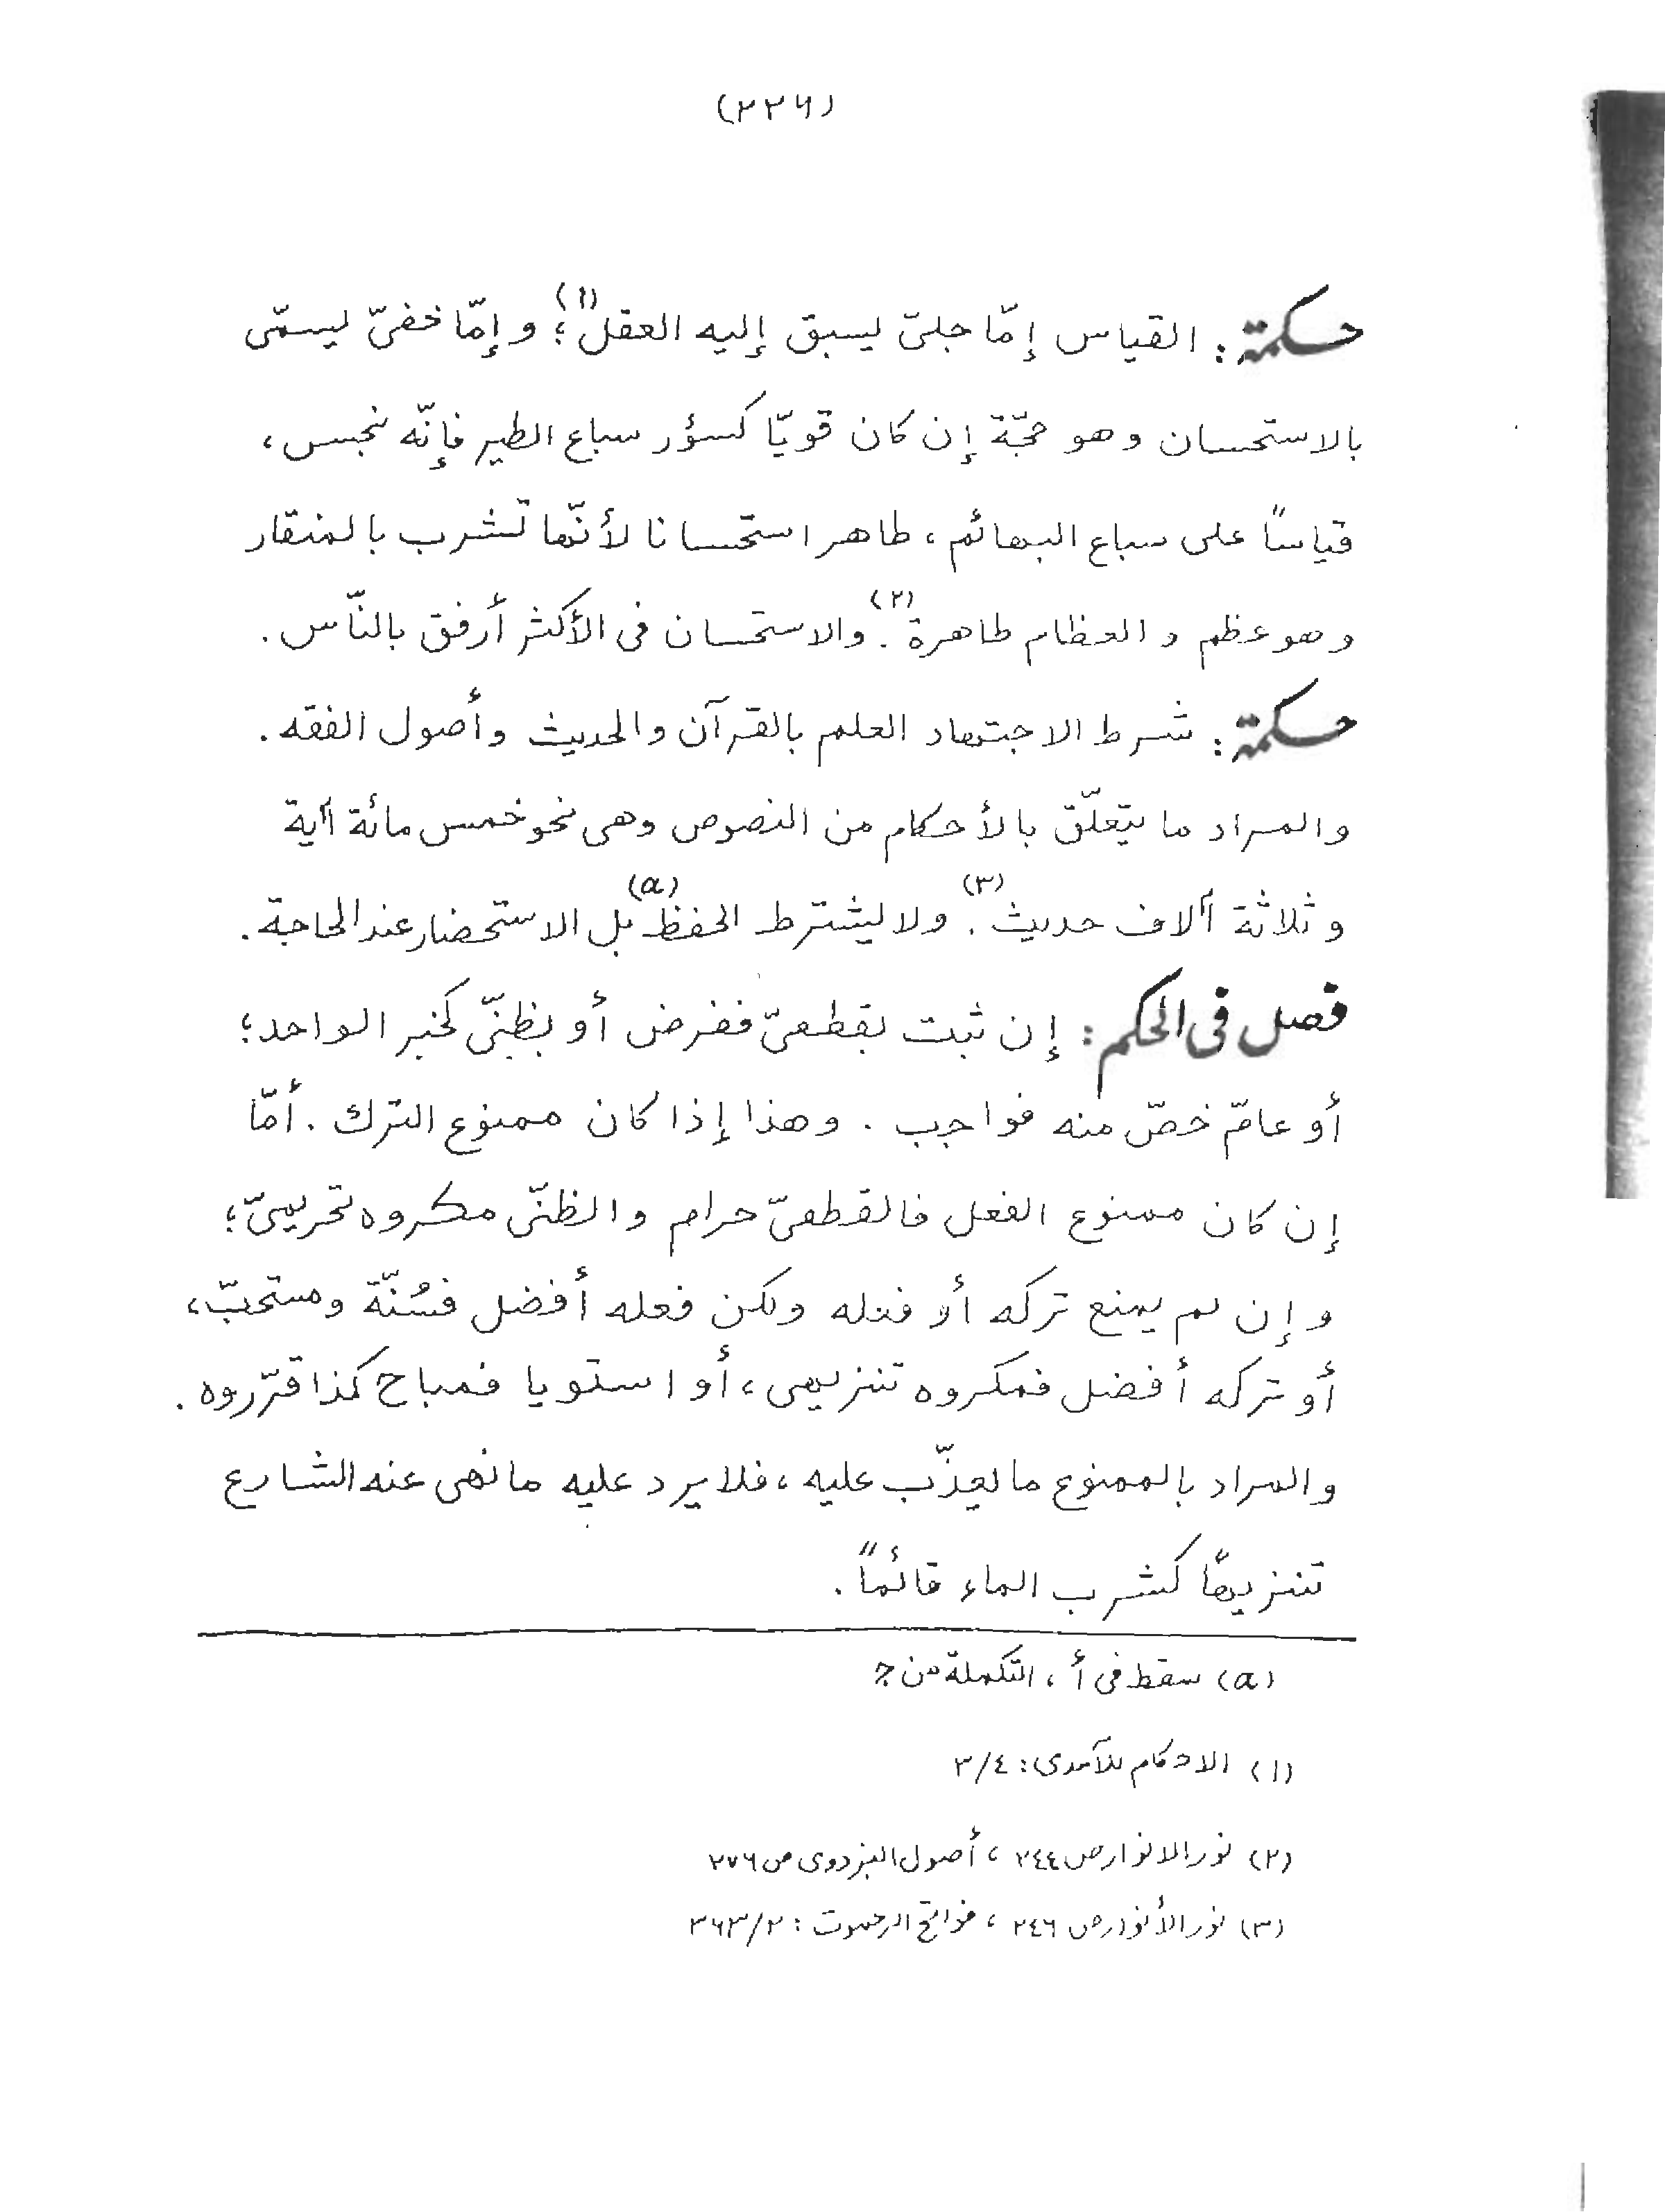 (٢٢٦)
حكمة: القياس إمّا جلىّ يسبق إليه العقل(١)؛ و إمّا خفىّ يسمّى
بالاستحسان وهو حجّة إن كان قويّا كسؤر سباع الطير فإنّه نجس،
قياسًا على سباع البهائم، طاهر استحسانا لأنّها تشرب بالمنقار
وهو عظم و العظام طاهرة(٢). والاستحسان فى الأكثر أرفق بالنّاس.
حكمة: شرط الاجتهاد العلم بالقرآن والحديث وأصول الفقه.
والمراد ما يتعلّق بالأحكام من النصوص وهى نحو خمس مائة آية
و ثلاثة آلاف حديث(٣). ولا يشترط الحفظ(a) بل الاستحضار عند الحاجة.
فصل فى الحكم: إن ثبت بقطعىّ ففرض أو بظنّىّ كخبر الواحد؛
أو عامّ خصّ منه فواجب. وهذا إذا كان ممنوع الترك. أمّا
إن كان ممنوع الفعل فالقطعىّ حرام و الظنّى مكروه تحريمىّ؛
و إن لم يمنع تركه أو فعله ولكن فعله أفضل فسُنّة ومستحبّ،
أو تركه أفضل فمكروه تنزيهى، أو استويا فمباح كذا قرّروه.
والمراد بالممنوع ما يعذّب عليه، فلا يرد عليه ما نهى عنه الشارع
تنزيهًا كشرب الماء قائمًا.
(a) سقط فى أ، التكملة من ج
(١) الاحكام للآمدى: ٣/٤
(٢) نور الانوار ص ٢٤٤، أصول البزدوى ص ٢٧٦
(٣) نور الأنوار ص ٢٤٦، فواتح الرحموت: ٣٦٣/٢